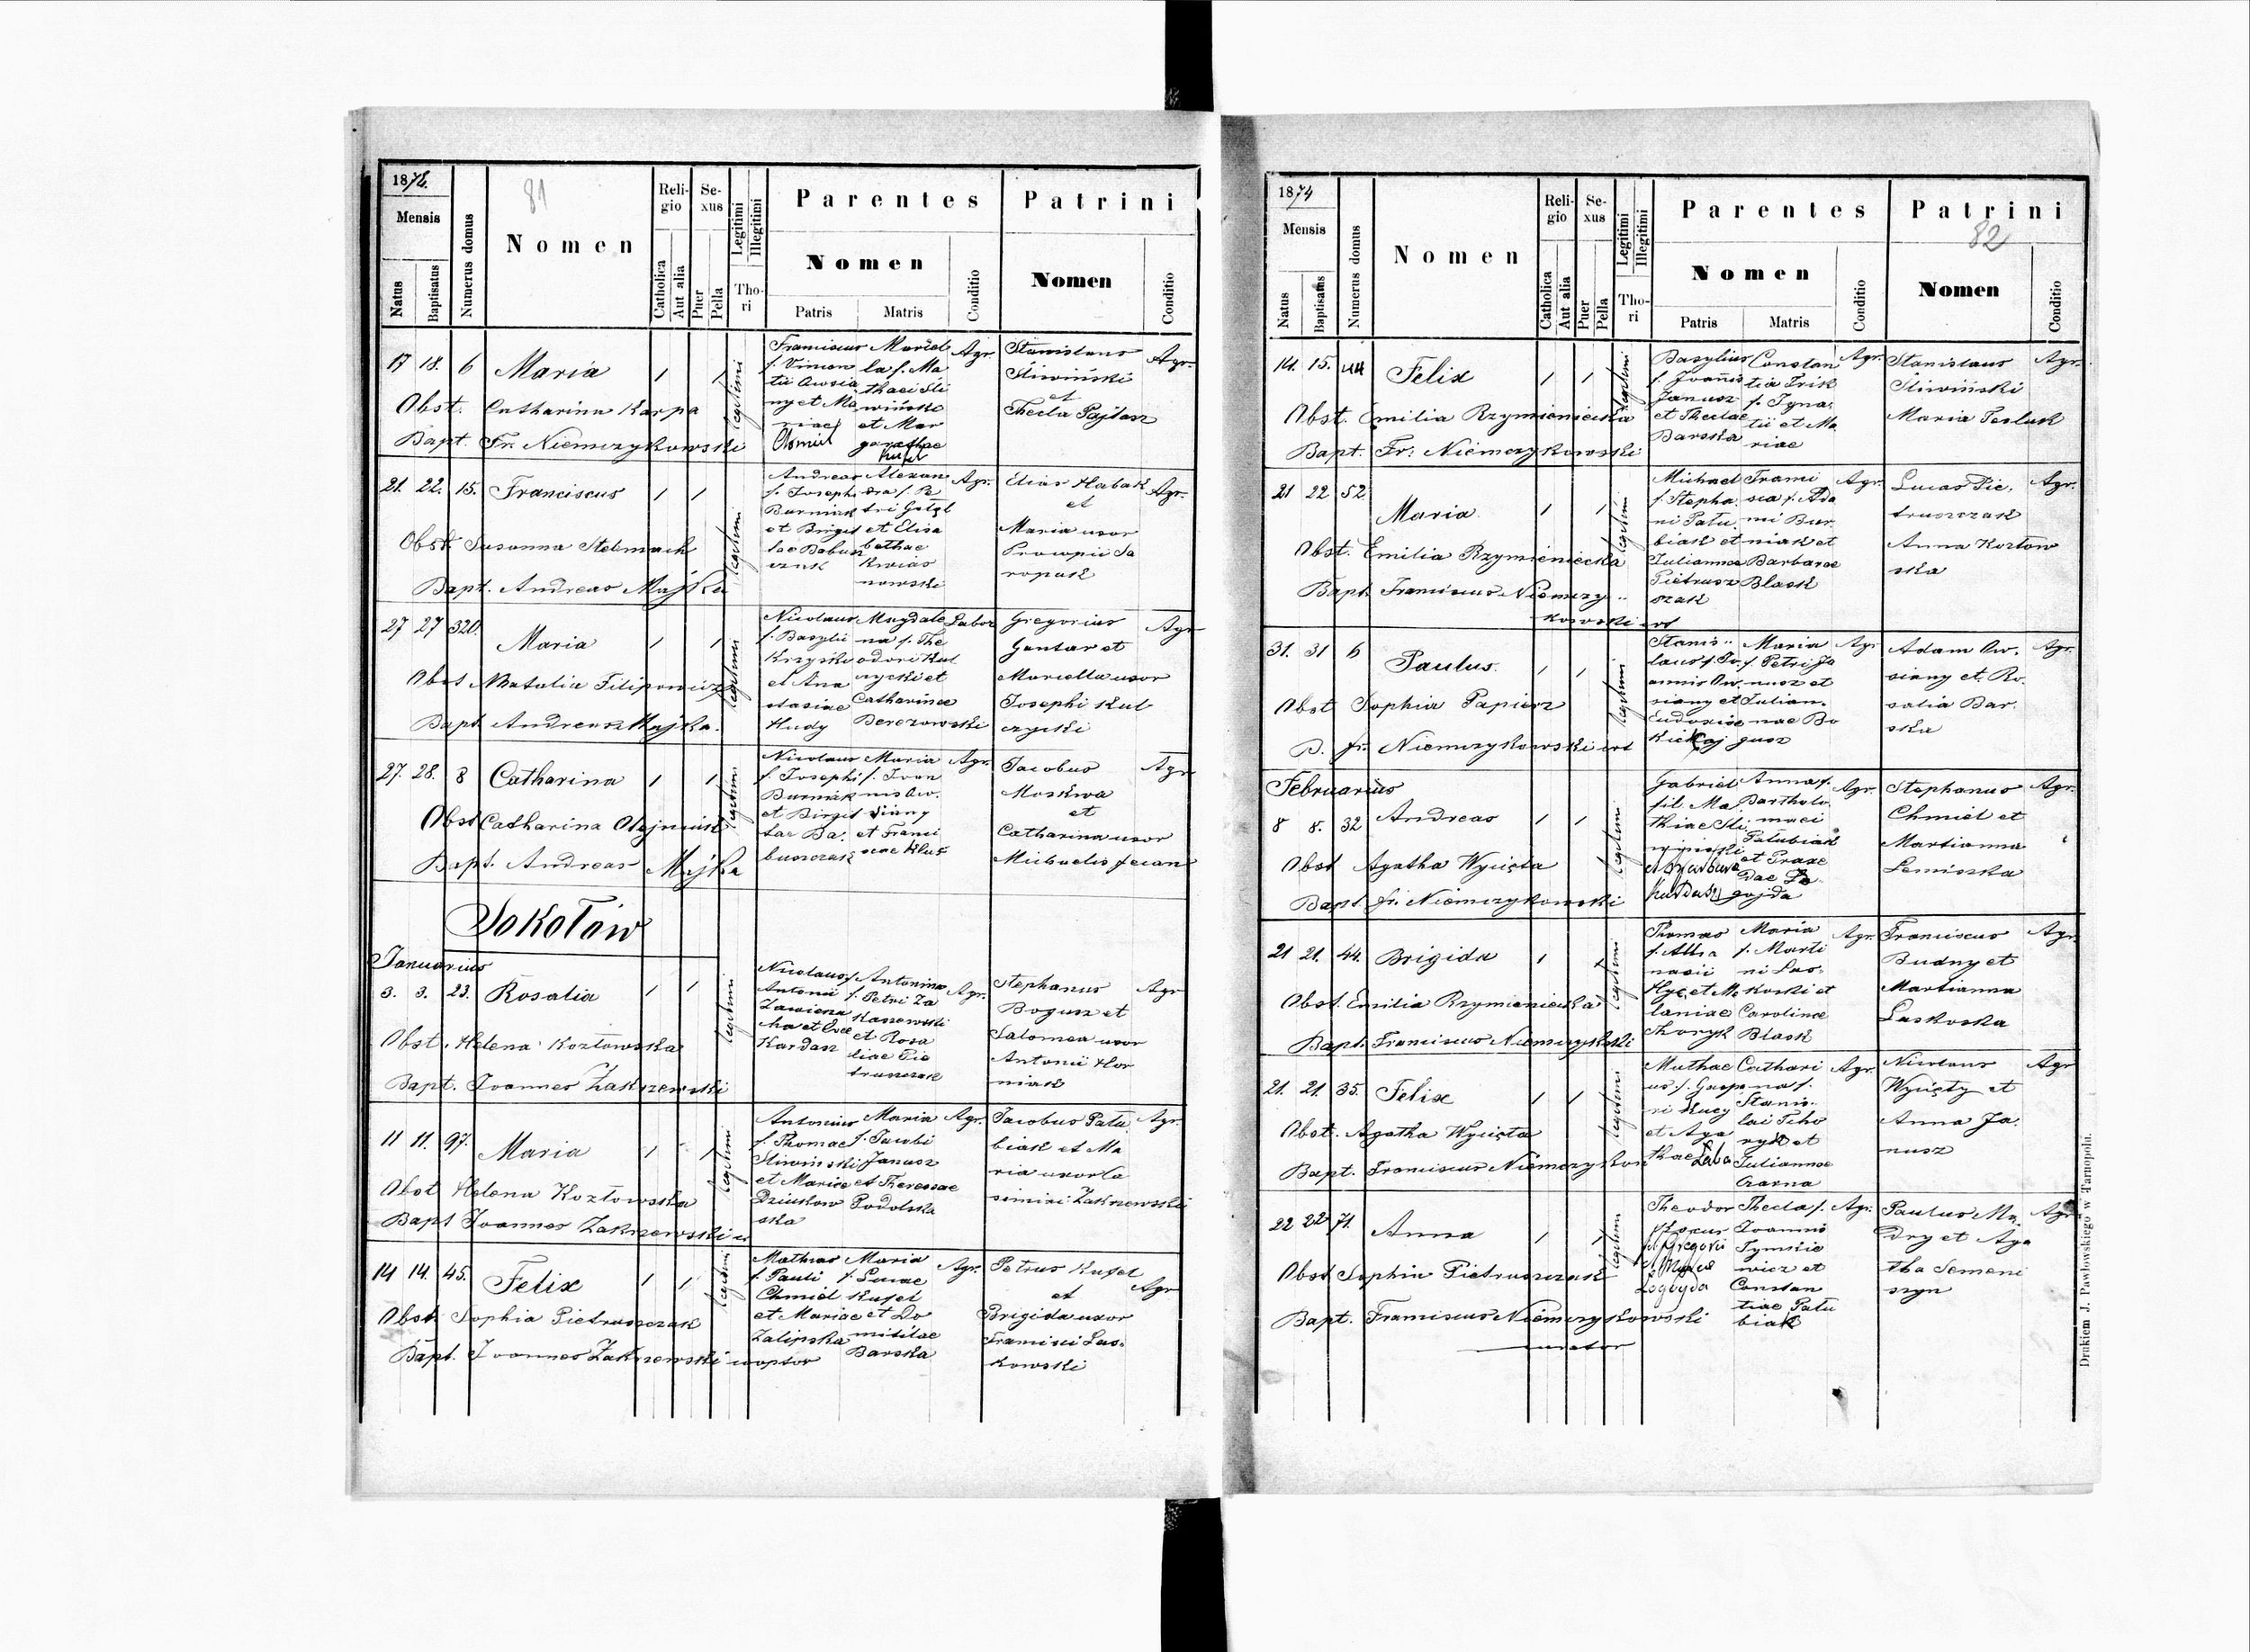 1874.
Mensis
Natus
Baptisatus
Numerus domus
81
Nomen
Religio
Catholica
Aut alia
Sexus
Puer
Pella
Legitimi
Illegitimi
Thori
Parentes
Nomen
Patris
Matris
Conditio
Patrini
Nomen
Conditio
17 18. 6 Maria / / legitimi
Obst. Catharina Karpa
Bapt. Fr. Niemczykowski
Franciscus
f. Vincen
tii Owsia
ny et Ma
riae
Chmiel
Mariel
la f. Ma
thaei Sli
wiński
et Mar
garethae
Kufel
Agr.
Stanislaus
Śliwiński
et
Thecla Pajtasz
Agr.
21. 22. 15. Franciscus / / legitimi
Obst. Susanna Stelmach
Bapt. Andreas Majka
Andreas
f. Josephi
Burniak
et Birgit
tae Babus
czuk
Alexan
dra f. Pe
tri Gołąb
et Elisa
bethae
Kwias
nowski
Agr.
Elias Habak
et
Maria uxor
Procopii Sa
ropak
Agr.
27 27 320. Maria / / legitimi
Obst Natalia Filipowicz
Bapt. Andreas Majka.
Nicolaus
f. Basylii
Krzyski
et Ana
stasiae
Hudy
Magdale
na f. The
odori Kul
czycki et
Catharinae
Berezowski
Labor
Gregorius
Gontar et
Mariella uxor
Josephi Kul
czycki
Agr
27. 28. 8 Catharina / / legitimi
Obst Catharina Olejnik
Bapt. Andreas Majka
Nicolaus
f. Josephi
Burniak
et Birgit
tae Ba.
buszczak
Maria
f. Joan
nis Ow.
siany
et Franci
scae Klus
Agr.
Jacobus
Moskwa
et
Catharina uxor
Michaelis
Agr
Sokołów
Januarius
3. 3. 23. Rosalia / / legitimi
Obst. Helena Kozłowska
Bapt. Joannes Zakrzewski
Nicolaus f.
Antonii
Zawiera
ha et Luc
Kardasz
Antonina
f. Petri Za
kaszewski
et Rosa
liae Pie
truszczak
Agr.
Stephanus
Bogusz et
Salomea uxor
Antonii Hor
niak
Agr
11 11. 97. Maria / / legitimi
Obst Helena Kozłowska
Bapt Joannes Zakrzewski
Antonius
f. Thomae
Sliwinski
et Mariae
Dziurkow
ska
Maria
f. Jacobi
Janusz
et Theressae
Podolska
Agr.
Jacobus Patu
biak et Ma
ria uxor Ca
simiri Zakrzewski
Agr.
14 14. 45. Felix / / legitimi
Obst. Sophia Pietruszczak
Bapt. Joannes Zakrzewski
Mathias
f. Pauli
Chmiel
et Mariae
Zalipska
Maria
f. Lucae
Kufel
et Do
mitilae
Barska
Agr.
Petrus Kufel
et
Brigida uxor
Francisci Las.
kowski
Agr
1874
Mensis
Natus
Baptisatus
Numerus domus
Nomen
Religio
Catholica
Aut alia
Sexus
Puer
Pella
Legitimi
Illegitimi
Thori
Parentes
Nomen
Patris
Matris
Conditio
Patrini
82
Nomen
Conditio
14. 15. 44 Felix / / legitimi
Obst. Emilia Rzymieniecka
Bapt. Fr: Niemczykowski
Basylius
f. Joannis
Janusz
et Theclae
Barska
Constan
tia Frik
f. Igna.
tii et Ma.
riae
Agr.
Stanislaus
Śliwiński
Maria Tesluk
Agr.
21 22 52. Maria / / legitimi
Obst. Emilia Rzymieniecka
Bapt. Franciscus Niemczy
kowski
Michael
f. Stepha
ni Patu.
biak et
Juliannae
Pietrusz
szak
Franci
sca f. Ada
mi Bur.
niak et
Barbarae
Blask
Agr.
Lucas Pie.
truszczak
Anna Kozłow
ska
Agr.
31. 31 6 Paulus. / / legitimi
Obst Sophia Papierz
B. fr. Niemczykowski
Stanis
laus f. Jo.
annis Ow.
siany et
Eudoxiae
Maria
f. Petri Ja
nusz et
Julian.
nae Bo
gusz
Agr
Adam Ow.
siany et Ro.
salia Bar.
ska
Agr.
Februarius
8 8. 32 Andreas / / legitimi
Obst Agatha Wycięta
Bapt. fr. Niemczykowski
Gabriel
fil. Ma
thiae Sli.
wiński
et Barbarae
Kardasz
Anna f.
Bartholo.
maei
Patubiak
et Praxe
dae
gojda
Agr.
Stephanus
Chmiel et
Martianna
Lemiszka
Agr.
21 21. 44. Brigida / / legitimi
Obst. Emilia Rzymieniecka
Bapt. Franciscus Niemczykowski
Thomas
f. Atha
nasii
Hyc et Me
laniae
Maria
f. Marti
ni Las.
koski et
Carolinae
Blask
Agr.
Franciscus
Budny et
Martianna
Laskoska
Agr.
21. 21. 35. Felix / / legitimi
Obst. Agatha Wycięta
Bapt. Franciscus Niemczykow
Mathae
us f. Gaspa
ri Kucy
et Aga
thae Laba
Cathari
na f.
Stanis.
lai Tcho
ryk et
Juliannae
Czarna
Agr.
Nicolaus
Wycięty et
Anna Ja.
nusz
Agr
22 22 71. Anna / / legitimi
Obst Sophia Pietruszczak
Bapt. Franciscus Niemczykowski
curator
Theodor
f. Gregorii
Łogoyda
Thecla f.
Joannis
Tymkie
wicz et
Constan
tiae Patu
biak
Agr.
Paulus Ma.
dry et Aga
tha Semeni
szyn
Agr
Drukiem J. Pawłowskiego w Tarnopolu.